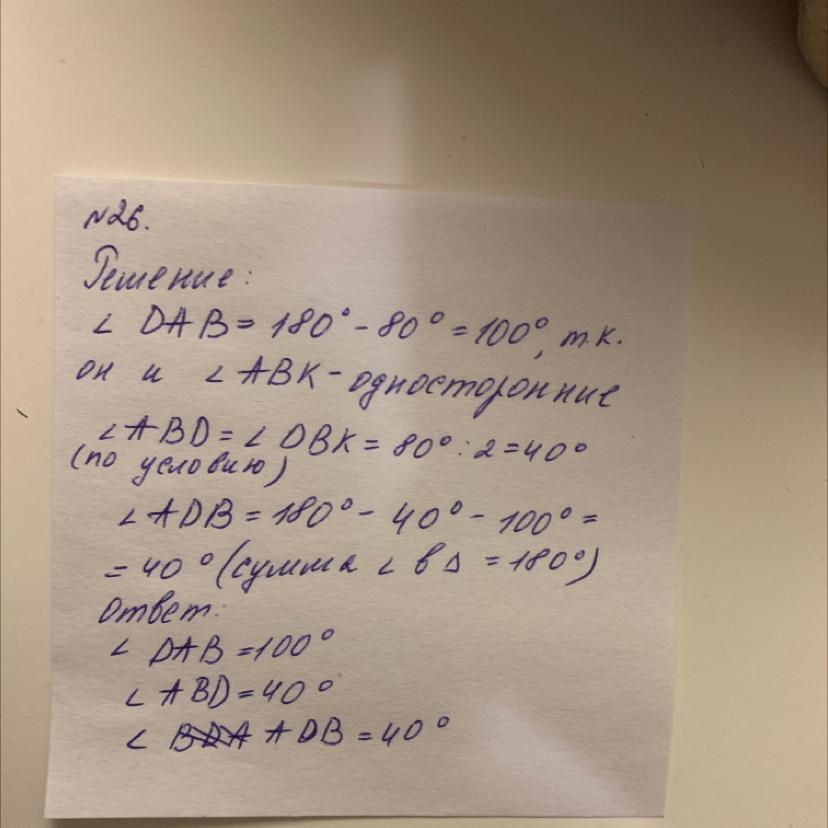 №26.
Решение:
∠ DAB = 180° - 80° = 100°, т.к.
он и ∠ABK - односторонние
∠ABD = ∠ DBK = 80° : 2 = 40°
(по условию)
∠ADB = 180° - 40° - 100° =
= 40° (сумма ∠ в Δ = 180°)
Ответ:
∠ DAB = 100°
∠ ABD = 40°
∠ BDA ADB = 40°